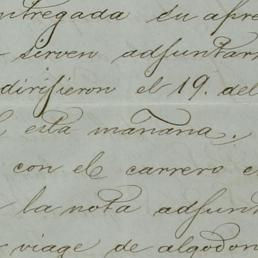 ntregada su apre
sirven adjuntar
dirijieron el 19. del
esta mañana.
con el carrero e
la nota adjunt
viage de algodon